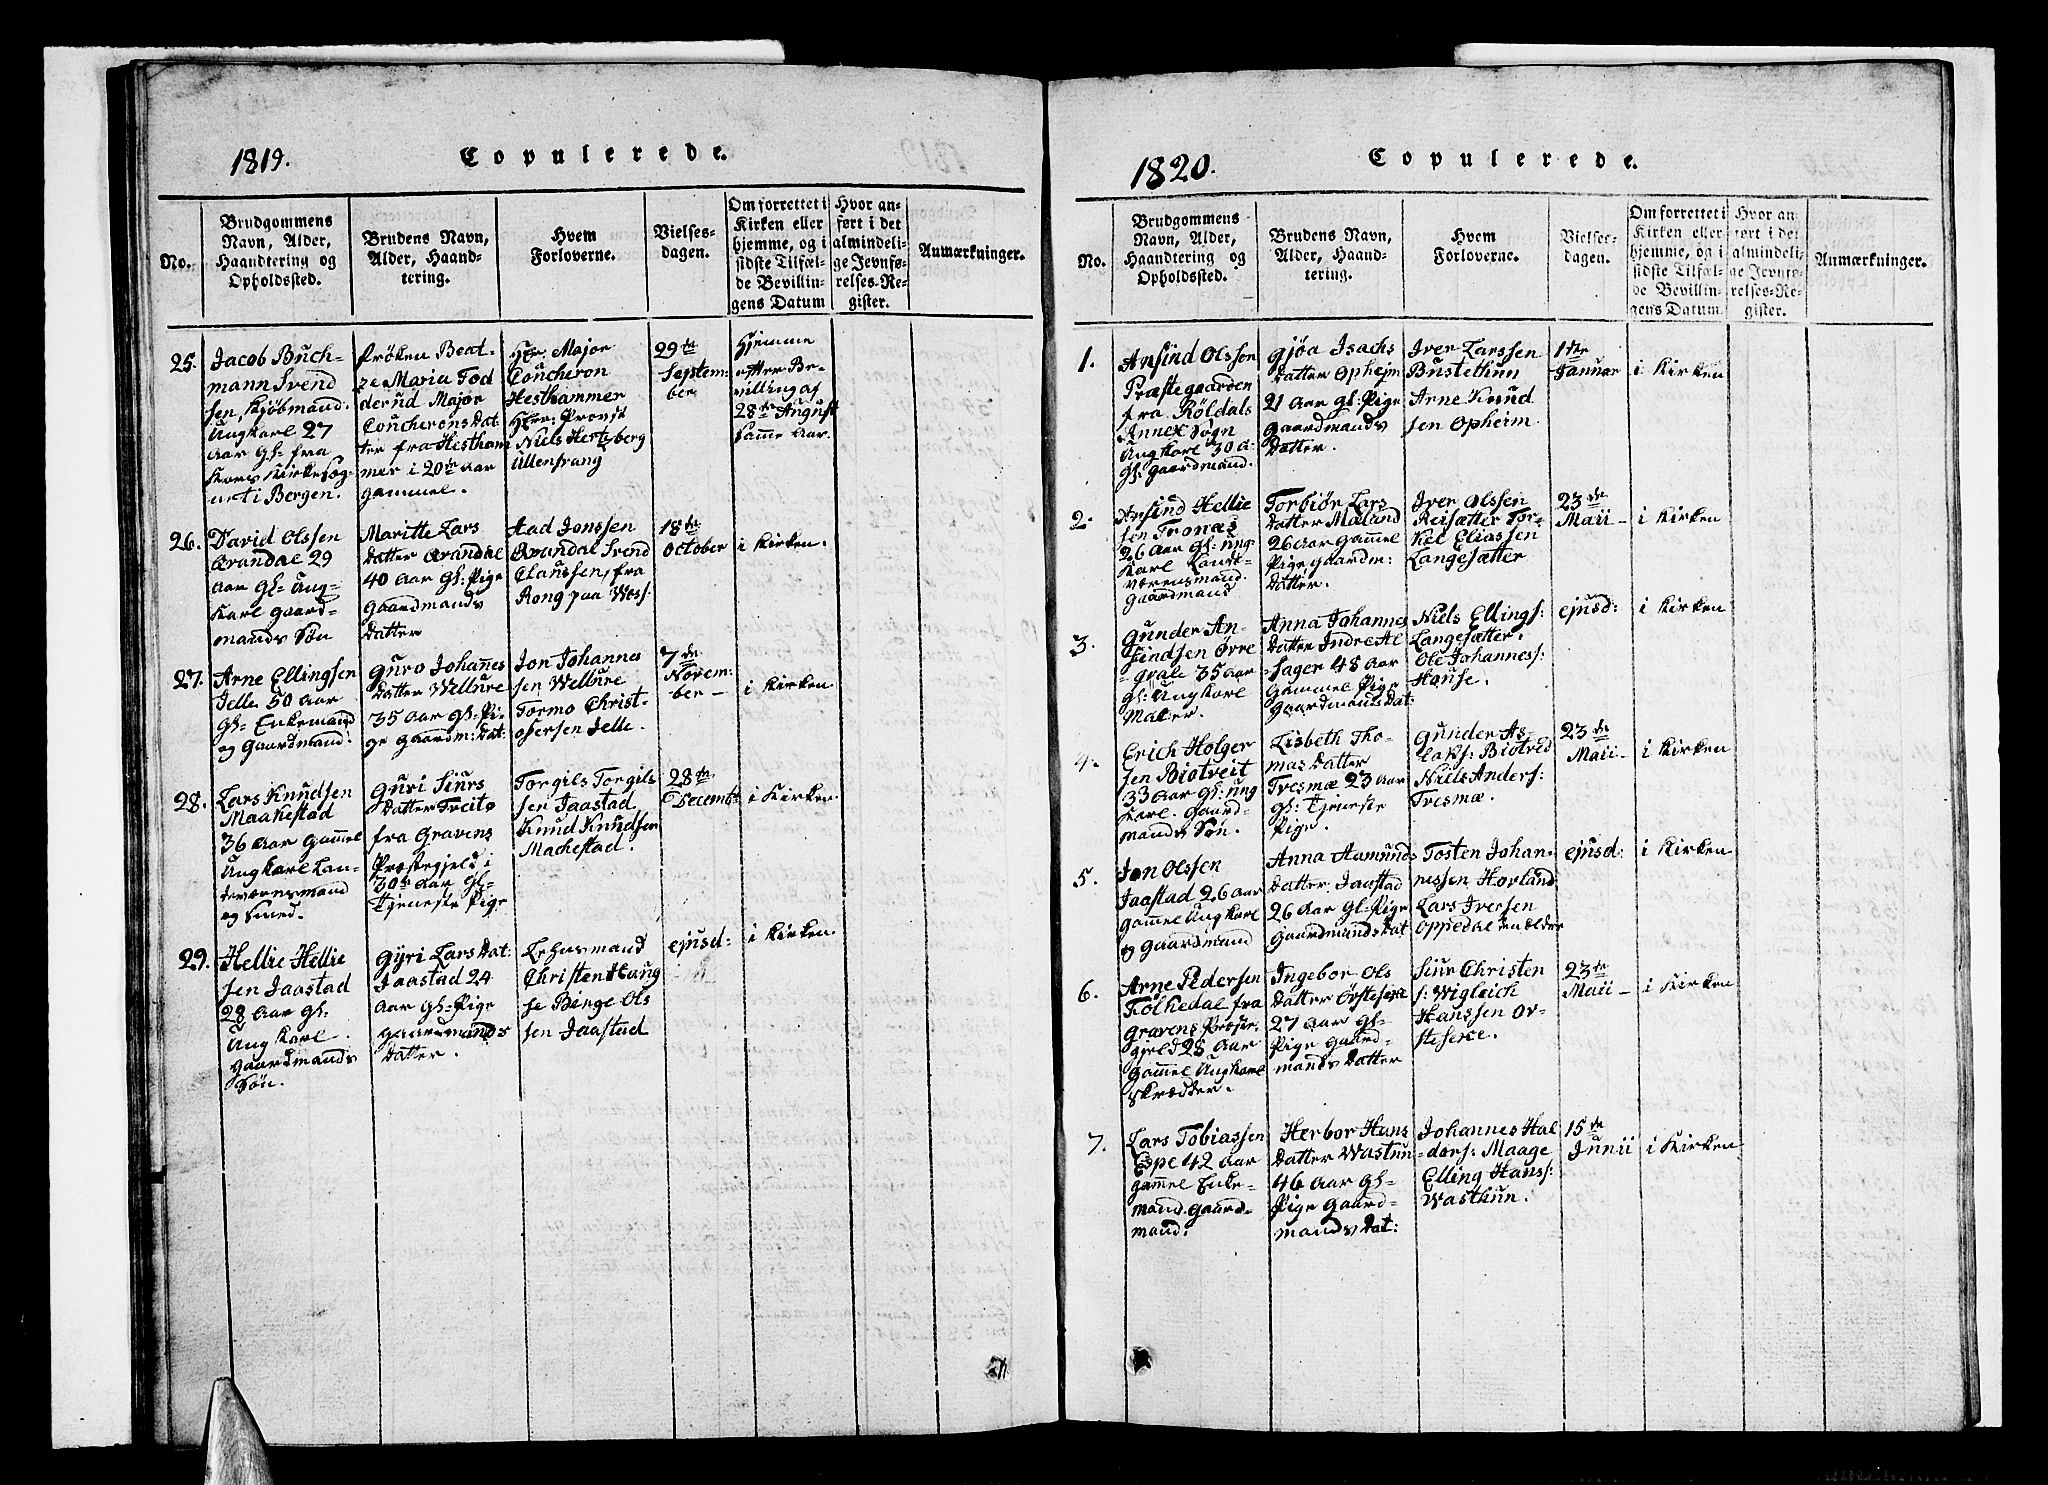 1819.
Copulerede.
No.
Brudgommens
Navn, Alder,
Haandtering og
Opholdssted.
Brudens Navn,
Alder, Haand-
tering.
Hvem
Forloverne.
Vielses-
dagen.
Om forrettet i
Kirken eller
hjemme, og i
sidste Tilfæl-
de Bevillin-
gens Datum
Hvor an-
ført i det
almindeli-
ge Jevnfø-
relses-Re-
gister.
Anmærkninger.
25.
Jacob Buch-
mann Svend
sen, Kjøbmand.
Ungkarl 27
Aar Gl: fra
Kors Kirkesog-
net i Bergen.
Frøken Beat-
ze Maria Tod
derud Major
Coucherons Dat
ter fra Hestham
mer i 20de Aar
gammel.
Hr: Major
Coucheron
Hesthammer
Herr: Provst
Niels Hertzberg
Ullensvang
29de
Septem-
ber
Hjemme
efter Be-
villing af
28de August
samme Aar.
26.
David Olssen
29
Aar Gl: Ung-
karl Gaard-
mands Søn
Maritte Lars
Datter
40 Aar Gl: Pige
Gaardmands
Datter
Aad Jonssen
Svend
Claussen, fra
Rong paa Woss:
18de
October
i Kirken.
27.
Arne Ellingsen
Jelle 50 Aar
Gl: Enkemand
og Gaardmand.
Guro Johannes
Datter Wellure
35 Aar Gl: Pi-
ge Gaardm: Dat:
Jon Johannes
sen Wellure
Tormo Christ-
ofersen Jelle.
7de
Novem-
ber –
i Kirken.
28.
Lars Knudsen
Maakestad
36 Aar Gammel
Ungkarl Lan-
deværnsmand
og Smed.
Guri Siurs
Datter Treito
fra Gravens
Præstegjeld i
30te Aar Gl:
Tjeneste Pige
Torgils Torgils
sen Jaastad
Knud Knudsen
Machestad.
28de
Decembr
i Kirken.
29.
Hellie Hellie
sen Jaastad
28 Aar Gl:
Ungkarl.
Gaardmands
Søn.
Gyri Lars Dat:
Jaastad 24
Aar Gl: Pige
Gaardmands
Datter.
Lehnsmand
Christen Haug
se Birge Ols
sen Jaastad
ejusd:
i Kirken.
1820.
Copulerede.
No.
Brudgommens
Navn, Alder,
Haandtering og
Opholdssted.
Brudens Navn,
Alder, Haand-
tering.
Hvem
Forloverne.
Vielses-
dagen.
Om forrettet i
Kirken eller
hjemme, og i
sidste Tilfæl-
de Bevillin-
gens Datum.
Hvor an-
ført i det
almindeli-
ge Jevnfø-
relses-Re-
gister.
Anmærkninger.
1.
Ansind Olssen
Præstegaarden
fra Röldals
Annex Søgn
Ungkarl 30 A:
Gl: Gaardmand.
Gjøa Isachs
Datter Opheim
21 Aar Gl: Pige
Gaardmands
Datter.
Iver Larssen
Bustethun
Arne Knud
sen Opheim
1ste
Januar
i Kirken
2.
Ansind Hellie
sen Tronæs
26 Aar Gl: Ung-
karl Land-
værensmand.
Gaardmand
Torbiør Lars
Datter Maland
26 Aar Gammel
Pige Gaardm:
Datter.
Iver Olssen
Reisætter Tor-
kel Eliassen
Langesætter
23de
Maii –
i Kirken
3.
Gunder An-
sindsen Øvre
35 Aar
Gl: Ungkarl
Maler.
Anna Johannes
Datter Indre Al
sager 48 Aar
Gammel Pige
Gaardmands Dat:
Niels Ellings:
Langesætter.
Ole Johanness:
House.
ejusd:
i Kirken
4.
Erich Holger
sen Biotveit
33 Aar Gl: Ung
karl. Gaard-
mands Søn.
Lisbeth Tho-
mas Datter
Tresmæ 23 Aar
Gl: Tjeneste
Pige.
Gunder As-
laks: Biotvid
Niels Anders:
Tresmæ.
23de
Maii –
i Kirken
5.
Jon Olssen
Jaastad 26 Aar
Gammel Ungkarl
og Gaardmand
Anna Aamunds
Datter Jaastad
26 Aar Gl: Pige
Gaardmands Dat
Tosten Johan-
nessen Hovland
Lars Iversen
Oppedal
ejusd:
i Kirken
6.
Arne Pedersen
Folkedal fra
Gravens Præste-
gjeld 28 Aar
Gammel Ungkarl
Skrædder.
Ingebor Ols
Datter Østesexe
27 Aar Gl:
Pige Gaard-
mands Datter
Siur Christen
s: Wigleich
Hanssen Øs-
tesexe.
23de
Maii –
i Kirken
7.
Lars Tobiassen
Espe 42 Aar
Gammel Enke-
mand. Gaard-
mand.
Herbor Hans
Datter Wastun
46 Aar Gl:
Pige Gaard-
mands Dat:
Johannes Hal
dors: Maage
Elling Hanss:
Wasthun.
15de
Junii
i Kirken